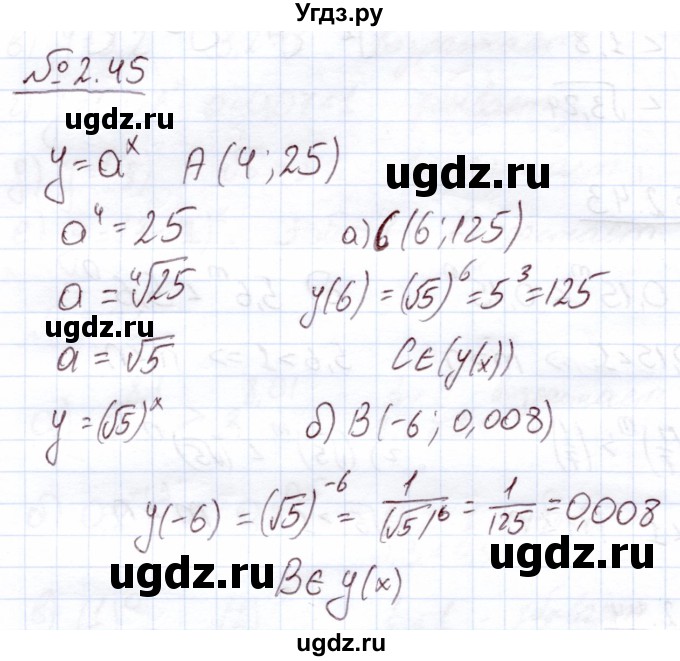 Угдз.ру
№ 2.45
ugdz.ru
y = a^x A (4 ; 25)
ugdz.ru
a^4 = 25 а) б (6 ; 125)
a = ⁴√25 y(6) = (√5)^6 = 5^3 = 125
ugdz.ru
a = √5 C ∈ (y(x))
y = (√5)^x б) B (-6 ; 0,008)
y(-6) = (√5)^-6 = 1/(√5)^6 = 1/125 = 0,008
ugdz.ru
ugdz.ru
B ∈ y(x)
ugdz.ru